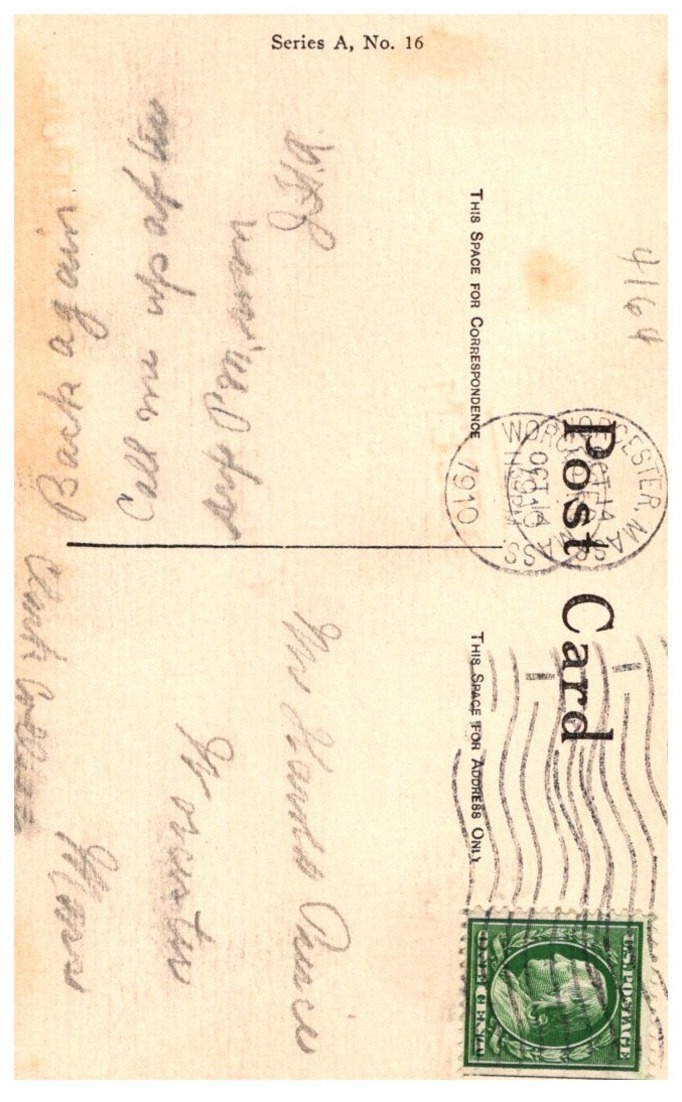 Series A, No. 16
4164
Post Card
THIS SPACE FOR CORRESPONDENCE
THIS SPACE FOR ADDRESS ONLY
WORCESTER, MASS
OCT 14
1910
U.S. POSTAGE
ONE CENT
Back again
Call me up after
P.M.
Mr Harold
Worcester
Mass
Clark College